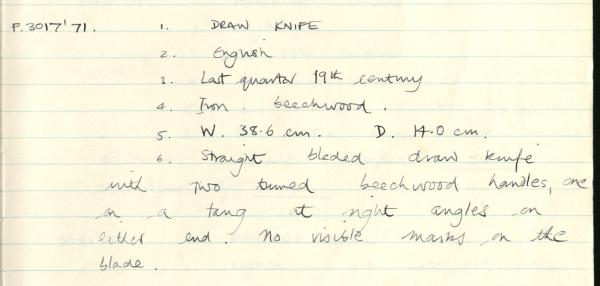 F.3017'71. 1. DRAW KNIFE
2. English
3. Last quarter 19th century
4. Iron. beechwood.
5. W. 38.6 cm. D. 14.0 cm.
6. Straight bladed draw-knife
with two turned beechwood handles, one
on a tang at right angles on
either end. No visible marks on the
blade.